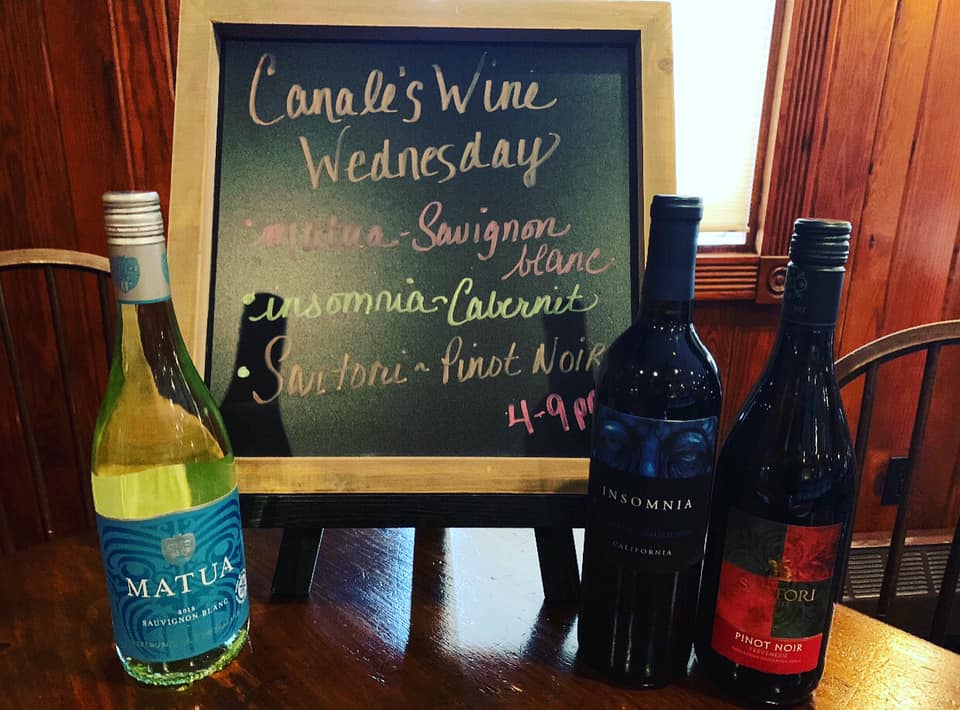 Canale's Wine
Wednesday
• matua - Sauvignon
blanc
• insomnia ~ Cabernet
• Sartori ~ Pinot Noir
4-9 p
MATUA
SAUVIGNON BLANC
INSOMNIA
CALIFORNIA
PINOT NOIR